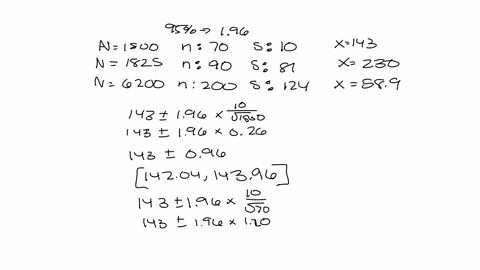 95% → 1.96
N=1500 n: 70 s: 10 x=143
N= 1825 n: 90 s: 81 x= 230
N= 6200 n: 200 s: 124 x= 88.9
143 ± 1.96 × 10/√1500
143 ± 1.96 × 0.26
143 ± 0.96
[142.04, 143.96]
143 ± 1.96 × 10/√70
143 ± 1.96 × 1.20